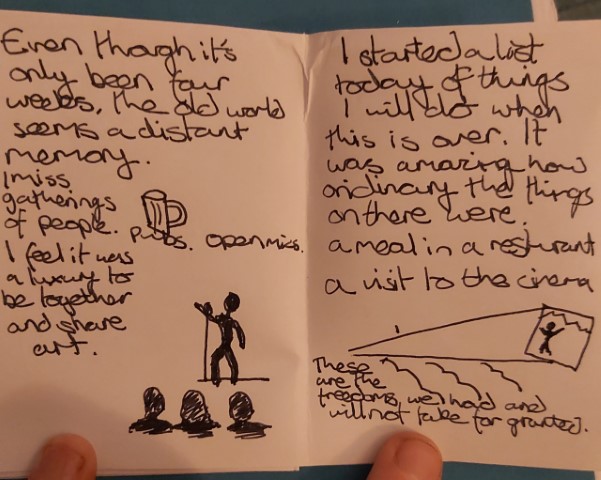 Even though it's
only been four
weeks, the old world
seems a distant
memory.
I miss
gatherings
of people.
pubs. open mics.
I feel it was
a luxury to
be together
and share
art.
I started a list
today of things
I will do when
this is over. It
was amazing how
ordinary the things
on there were.
a meal in a resturant
a visit to the cinema
These
are the
freedoms we had and
will not take for granted.